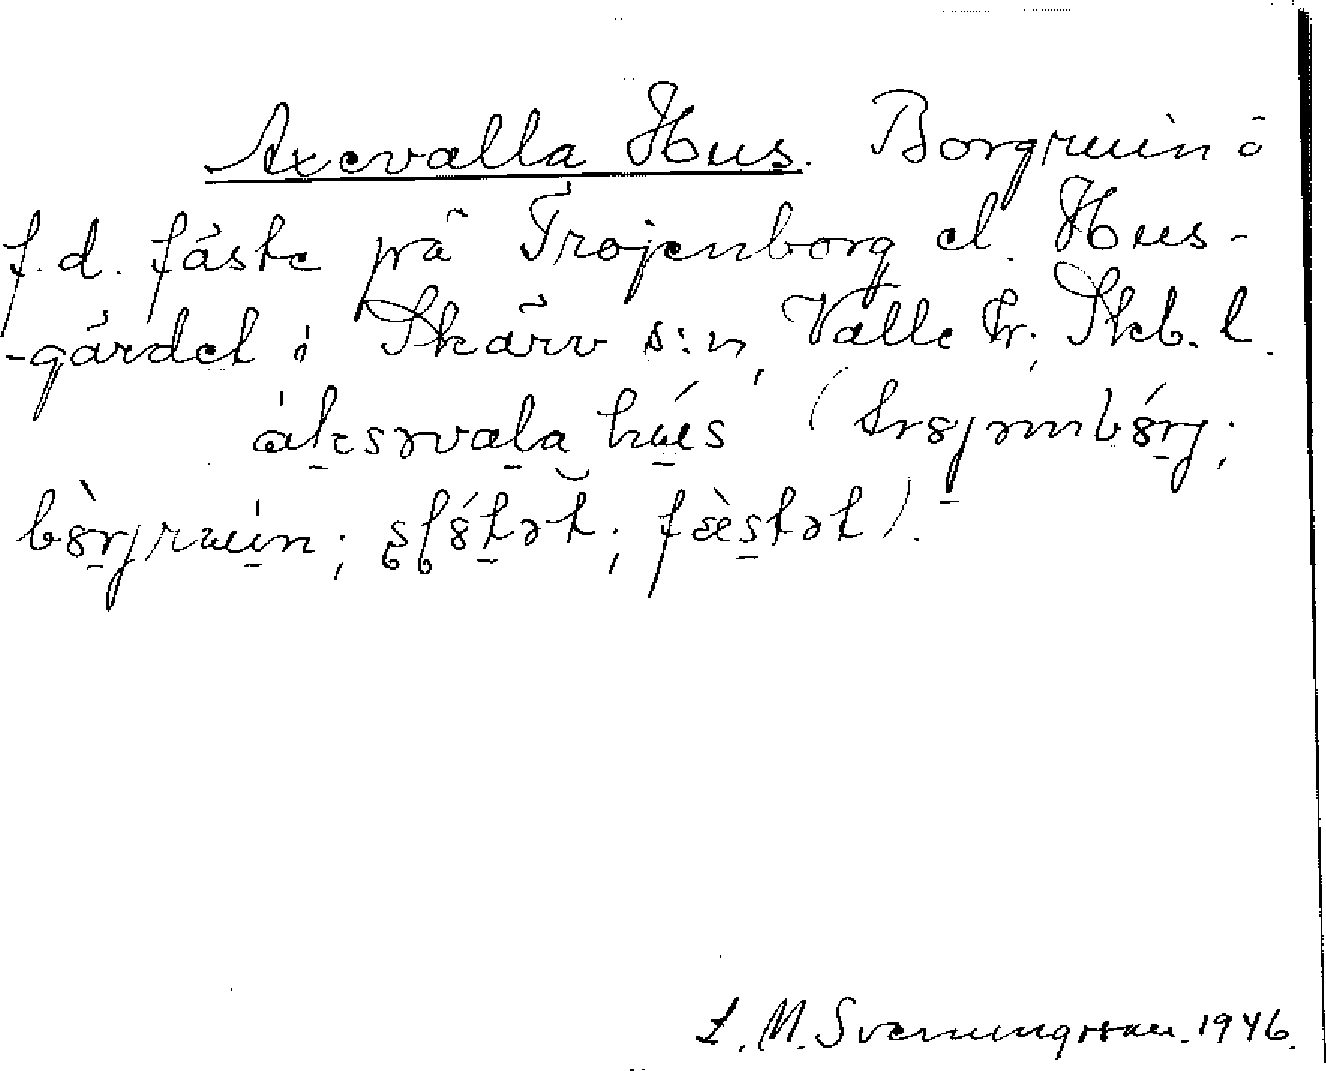 Axevalla Hus. Borgruin o
f.d. fäste på Trojenborg el. Hus-
-gärdet i Skärv s:n, Valle hr; Skb. l.
áksəvala hús (trojənbórj;
bòrjruin; slótət; fæ̀stət).
L. M. Svenungsson. 1946.